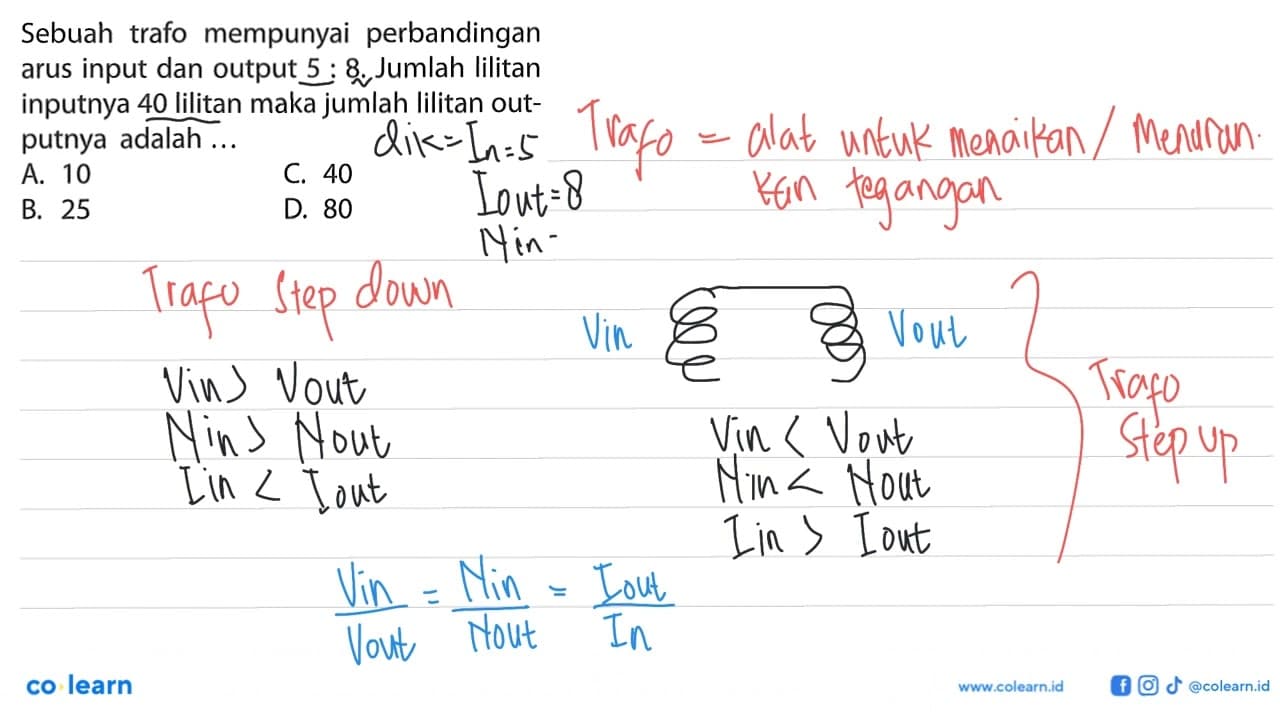 Sebuah trafo mempunyai perbandingan
arus input dan output 5 : 8. Jumlah lilitan
inputnya 40 lilitan maka jumlah lilitan out-
putnya adalah ...
A. 10
C. 40
B. 25
D. 80
dik = In = 5
Iout = 8
Nin -
Trafo = alat untuk menaikan / Menurun
kan tegangan
Trafo Step down
Vin > Vout
Nin > Nout
Iin < Iout
Vin
Vout
Vin < Vout
Nin < Nout
Iin > Iout
Trafo
Step up
Vin = Nin = Iout
Vout Nout In
co learn
www.colearn.id
@colearn.id